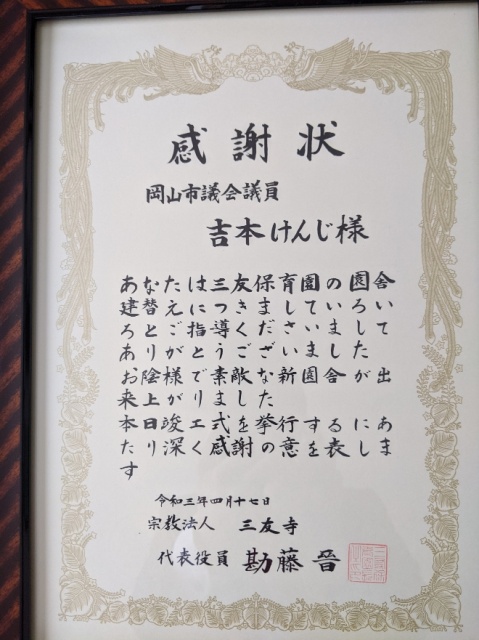 感謝状
岡山市議会議員
吉本けんじ様
あなたは三友保育園の園舎
建替えにつきましていろい
ろとご指導くださいまして
ありがとうございました
お陰様で素敵な新園舎が出
来上がりました
本日竣工式を挙行するにあ
たり深く感謝の意を表しま
す
令和三年四月十七日
宗教法人 三友寺
代表役員 勘藤晉